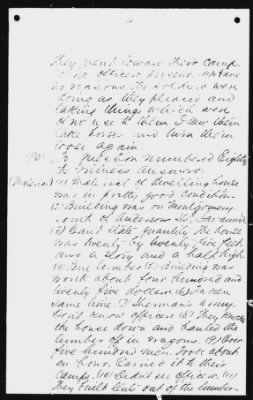 They went toward their camp.
no officer present. They gave
no reasons. The soldiers were
doing as they pleased and
taking things which were
of no use to them. I saw them
take horses and turn them
loose again.
80) To question numbered Eighty
the witness answers:
(Material) (1) Material of dwelling house
was in pretty good condition
(2) Building was on Montgomery
South of Anderson St. Savannah
(3) Cant state quantity the house
was twenty by twenty five feet
and a story and a half high
(4) Pine lumber (5) Building was
worth about four hundred and
twenty five dollars (6)
same time (7) Sherman's army
Don't know officers (8) They knocked
the house down and hauled the
lumber off in wagons. (9) Over
five hundred men. Took about
an hour. Carried it to their
Camp. (10) Didn't see officer. (11)
They built tents out of the lumber